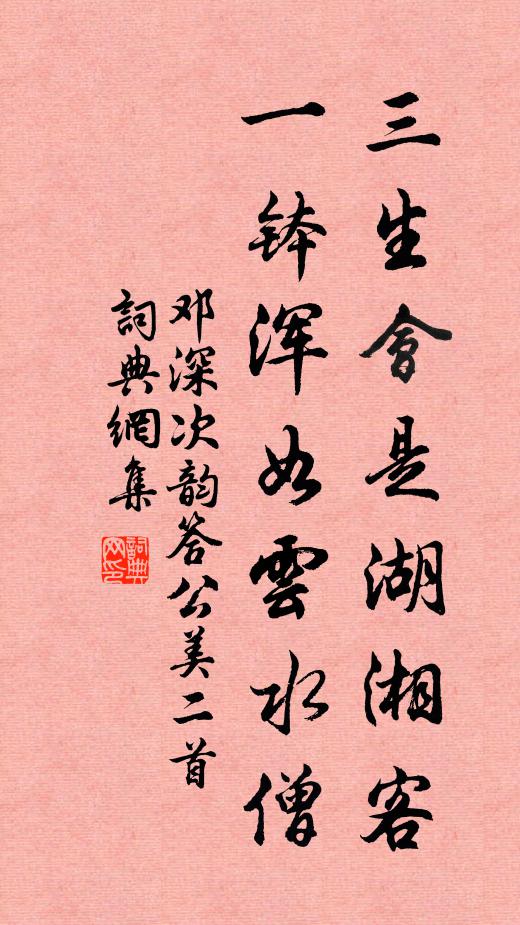 三生會是湖湘客
一钵浑如雲水僧
邓深次韵答公美二首
詞典網集
詞典網印